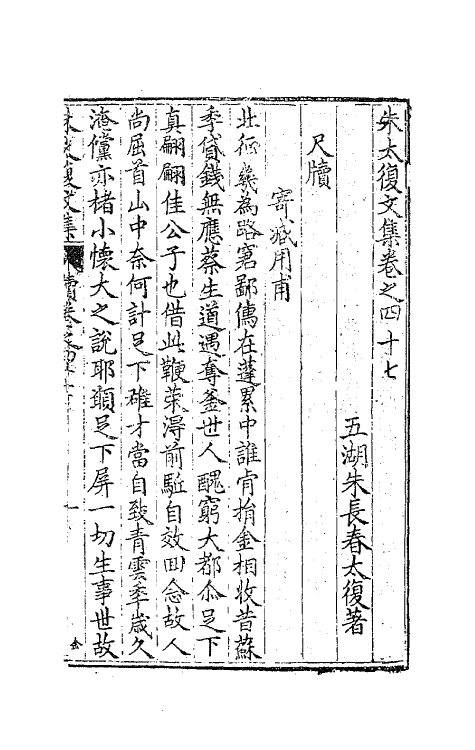 朱太復文集卷之四十七
五湖朱長春太復著
尺牘
寄臧用甫
北征幾為路窘鄙儔在蓬累中誰肯捐金相收昔蘇
季貸錢無應蔡生道遇奪釜世人醜窮大都尒足下
真翩翩佳公子也借此鞭策得前駈自效囬念故人
尚屈首山中奈何計足下確才當自致青雲季歲久
淹儻亦楮小懷大之說耶願足下屏一切生事世故